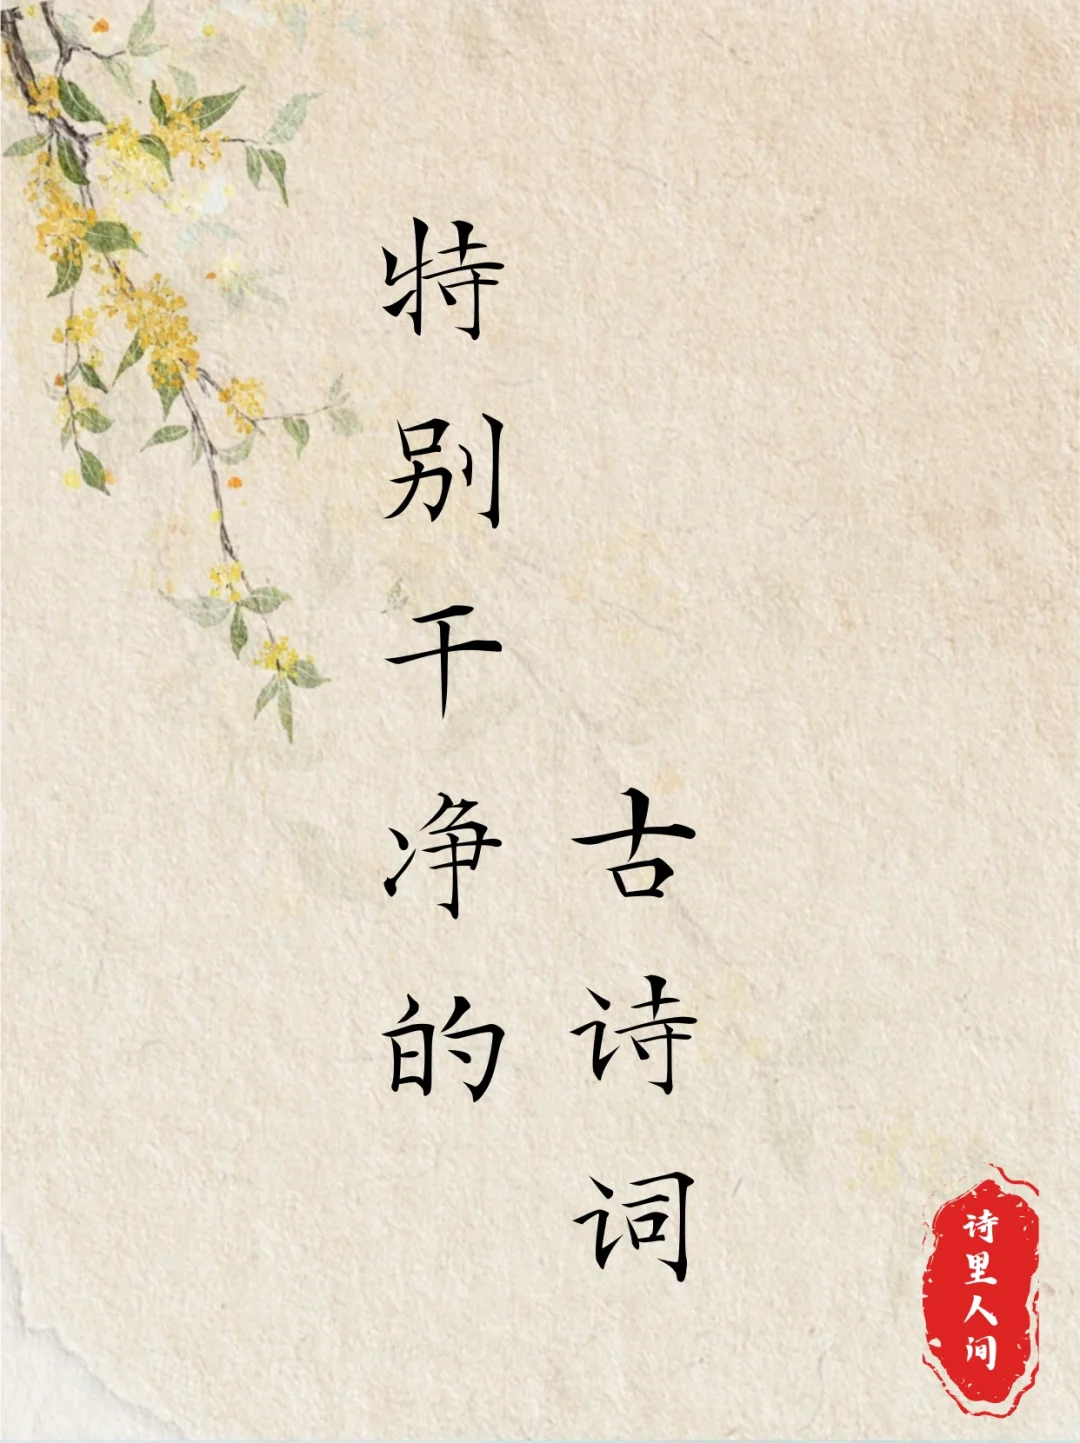 特别干净的
古诗词
诗里人间